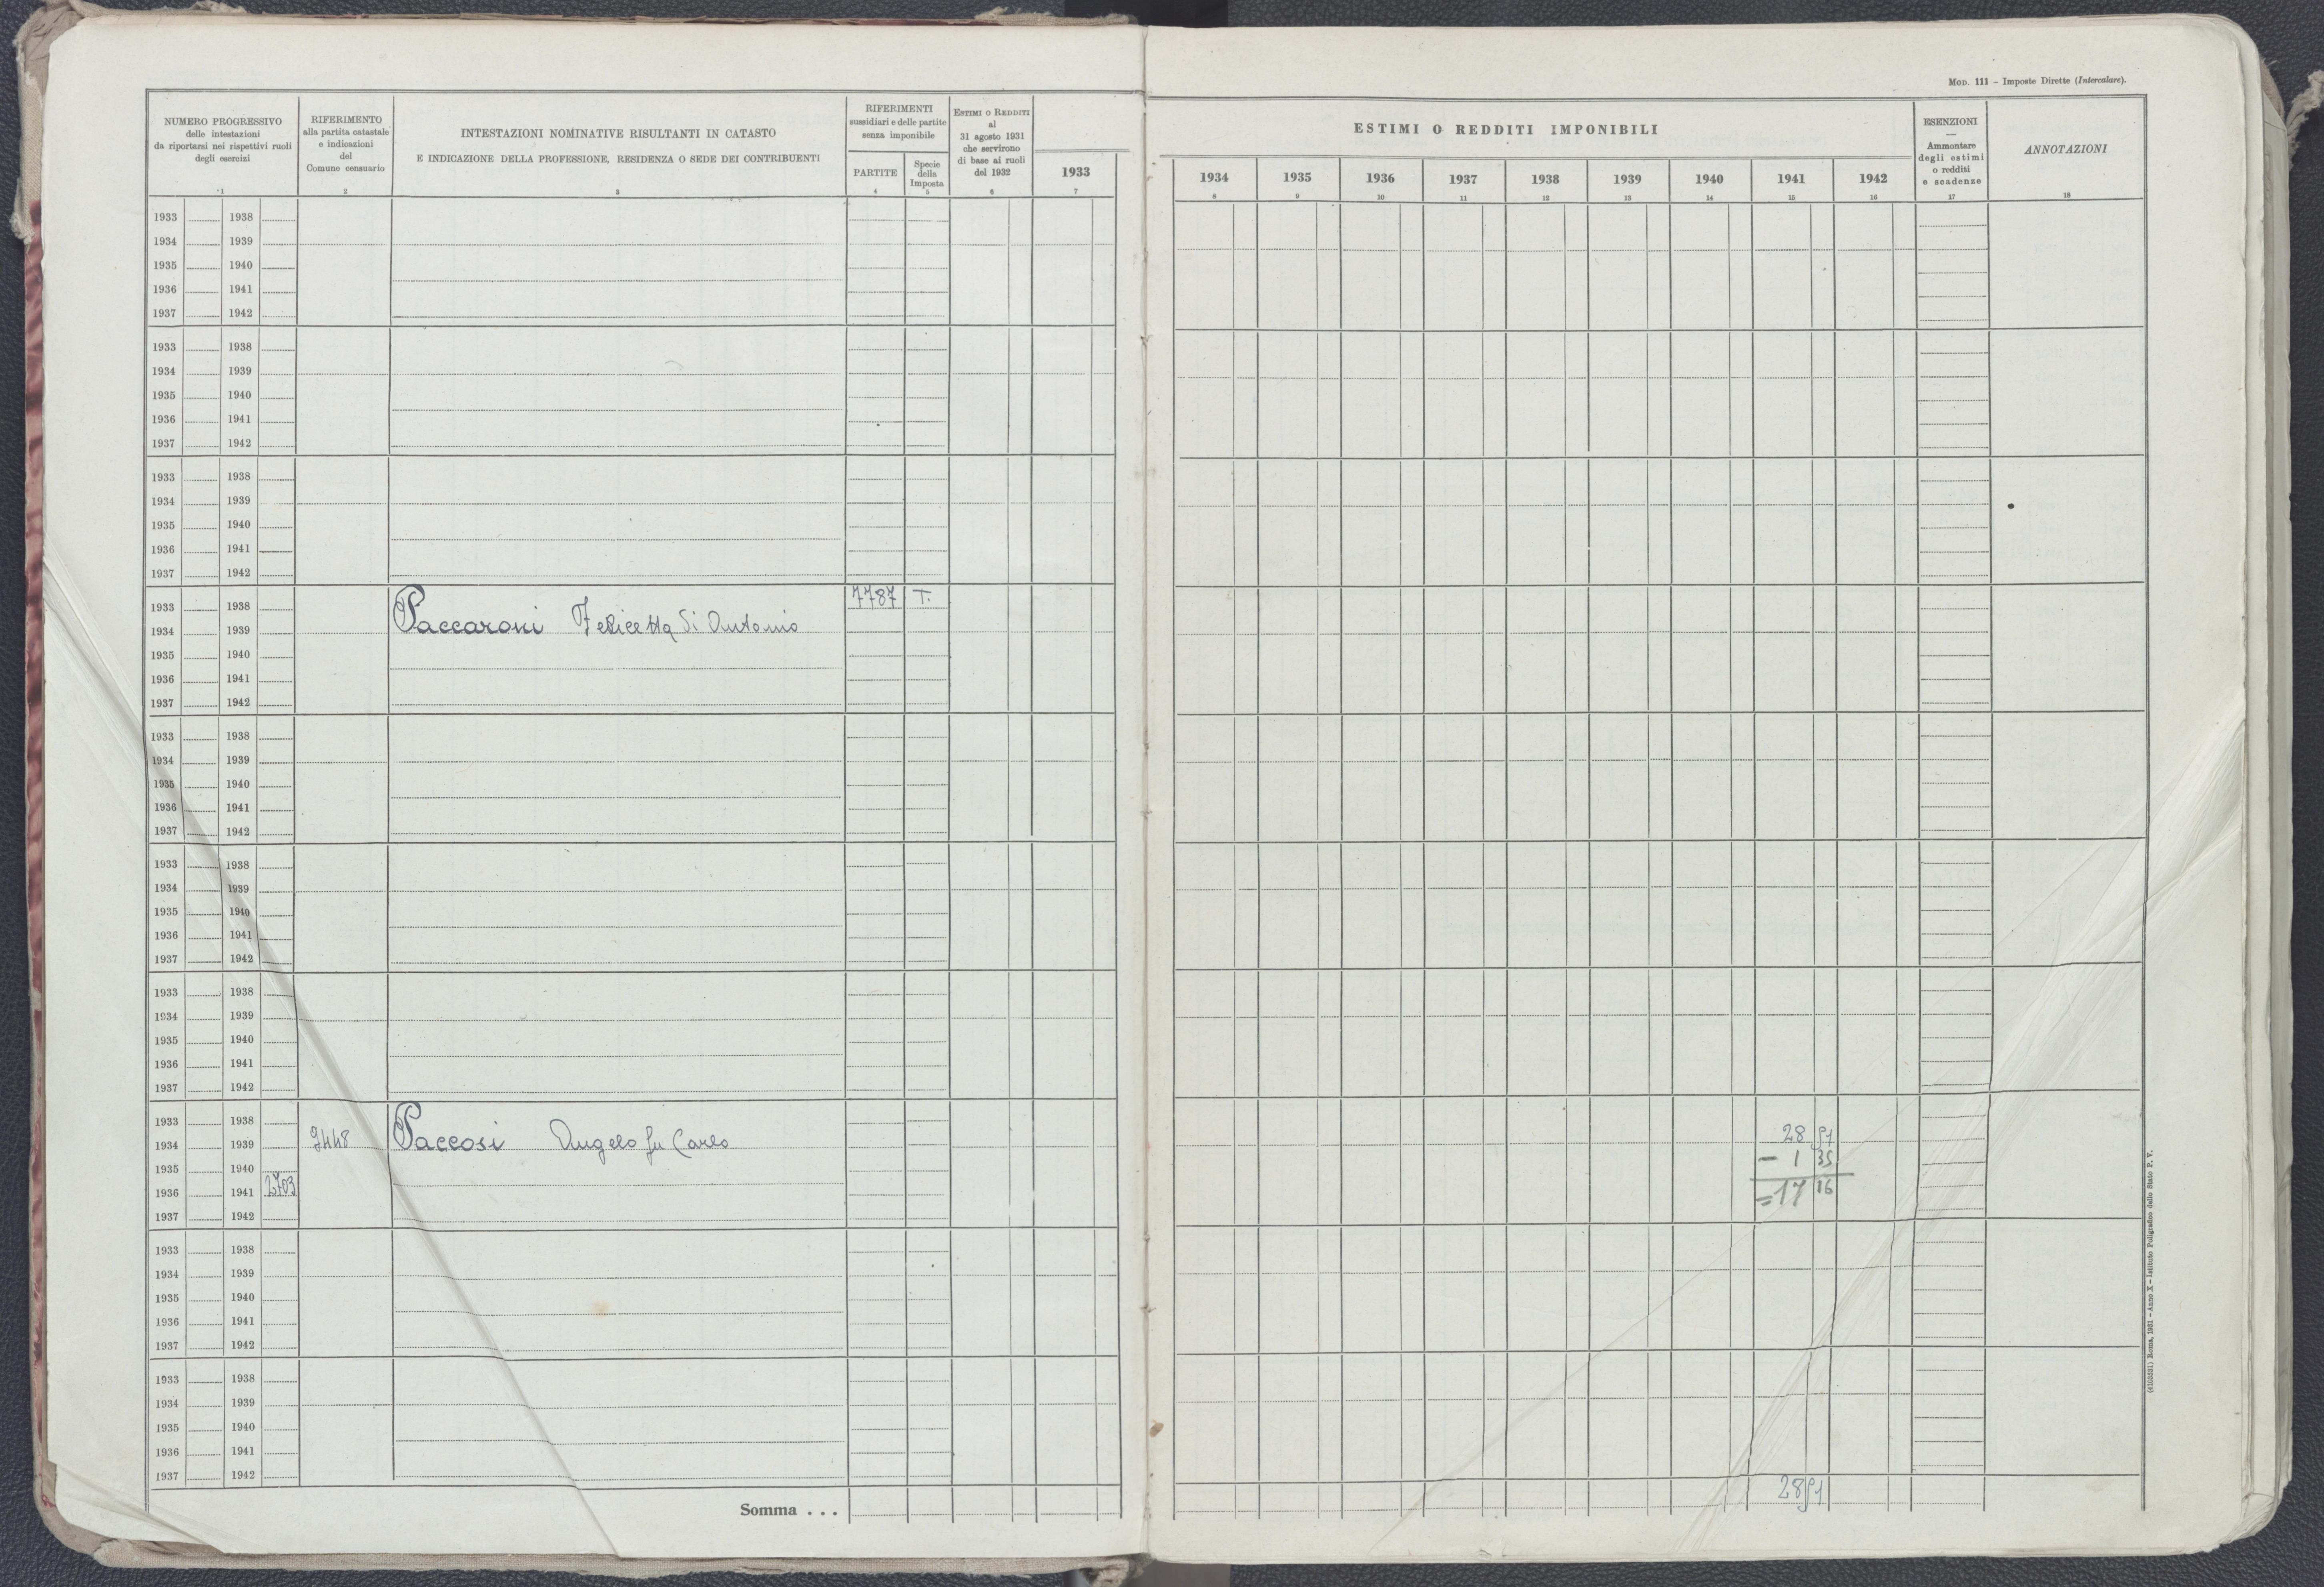 MOD. 111 – Imposte Dirette (Intercalare).
NUMERO PROGRESSIVO
delle intestazioni
da riportarsi nei rispettivi ruoli
degli esercizi
1
RIFERIMENTO
alla partita catastale
e indicazioni
del
Comune censuario
2
INTESTAZIONI NOMINATIVE RISULTANTI IN CATASTO
E INDICAZIONE DELLA PROFESSIONE, RESIDENZA O SEDE DEI CONTRIBUENTI
3
RIFERIMENTI
sussidiari e delle partite
senza imponibile
PARTITE
4
Specie
della
Imposta
5
ESTIMI O REDDITI
al
31 agosto 1931
che servirono
di base ai ruoli
del 1932
6
1933
7
ESTIMI O REDDITI IMPONIBILI
1934 1935 1936 1937 1938 1939 1940 1941 1942
8 9 10 11 12 13 14 15 16
ESENZIONI
—
Ammontare
degli estimi
o redditi
e scadenze
17
ANNOTAZIONI
18
1933 1938
1934 1939
1935 1940
1936 1941
1937 1942
1933 1938
1934 1939
1935 1940
1936 1941
1937 1942
1933 1938
1934 1939
1935 1940
1936 1941
1937 1942
1933 1938 7787 T.
1934 1939 Paccaroni Felicetta di Antonio
1935 1940
1936 1941
1937 1942
1933 1938
1934 1939
1935 1940
1936 1941
1937 1942
1933 1938
1934 1939
1935 1940
1936 1941
1937 1942
1933 1938
1934 1939
1935 1940
1936 1941
1937 1942
1933 1938
1934 1939 Paccosi Angelo fu Carlo 28
1935 1940 – 1 35
1936 1941 2703 = 17 16
1937 1942
1933 1938
1934 1939
1935 1940
1936 1941
1937 1942
1933 1938
1934 1939
1935 1940
1936 1941
1937 1942
Somma . . . 28
(4103531) Roma, 1931 – Anno X – Istituto Poligrafico dello Stato P. V.